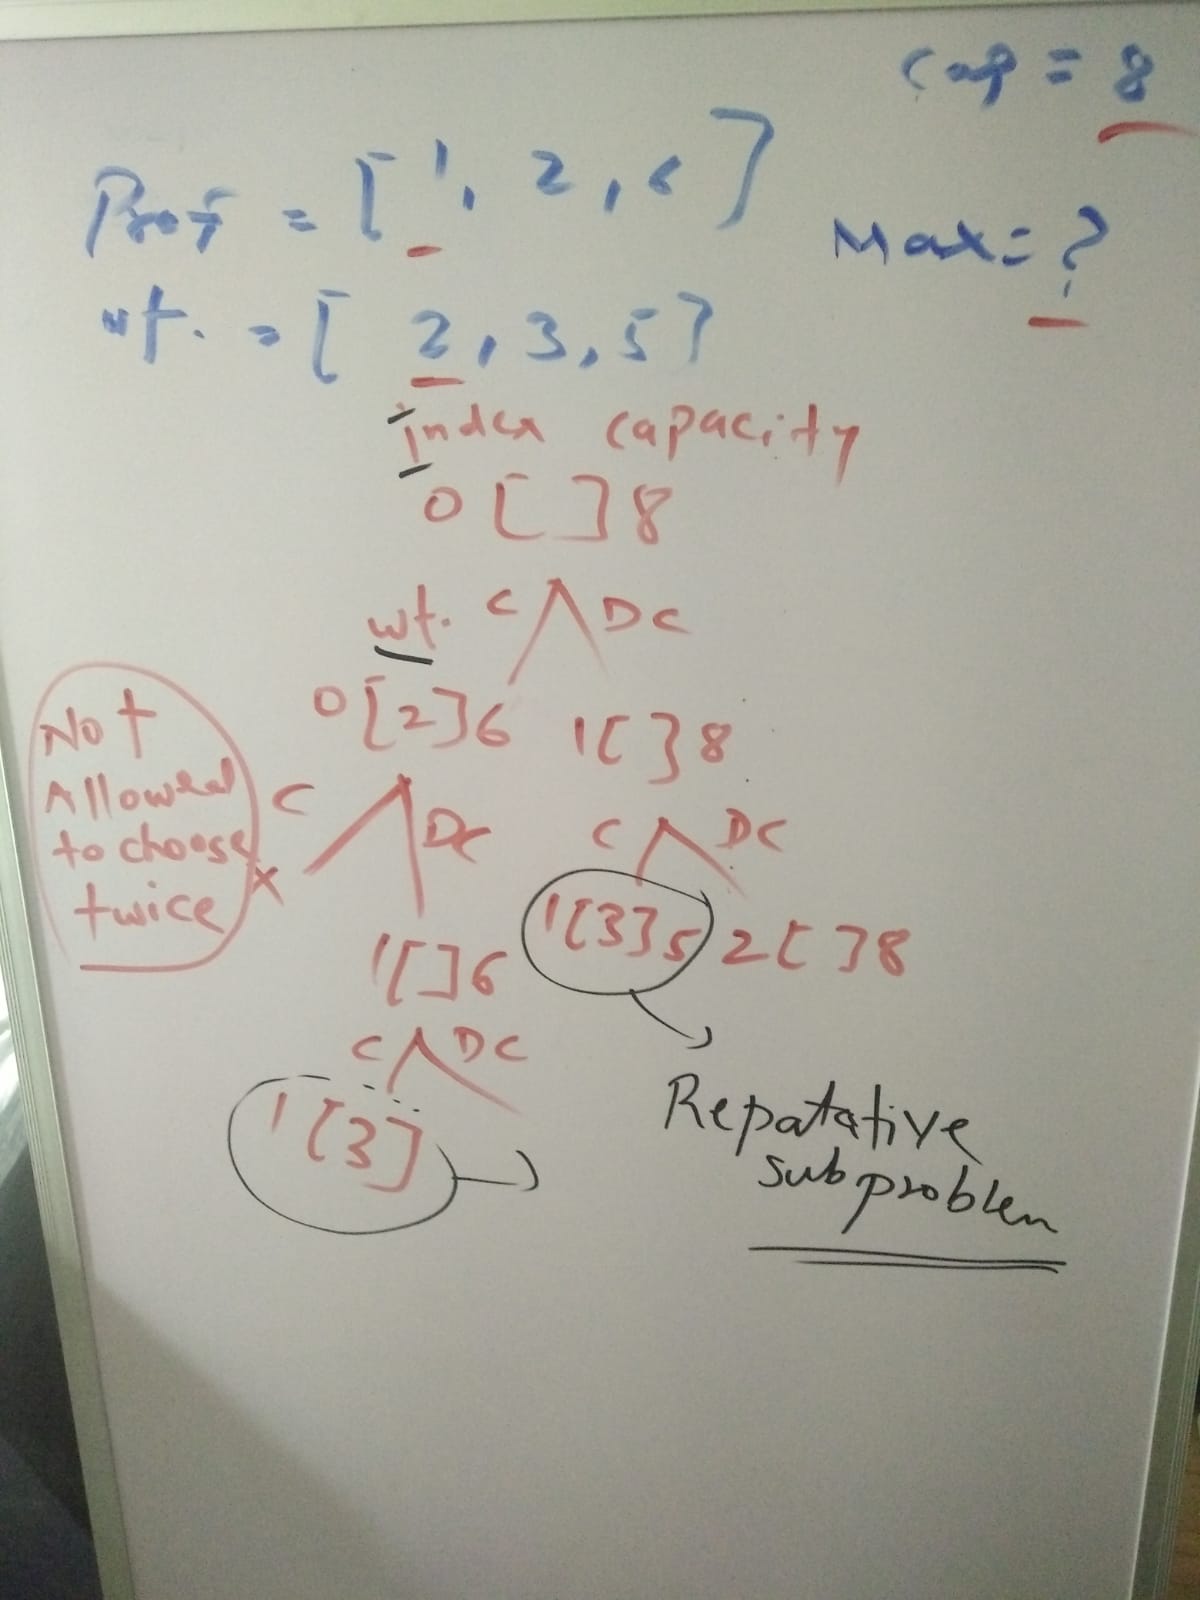 Cap = 8
Prof = [1, 2, 6]
Max = ?
wt. = [2, 3, 5]
index capacity
0 [ ] 8
C DC
wt.
0 [2] 6 1 [ ] 8
Not
Allowed
to choose
twice
C DC C DC
X
1 [3] 5 2 [ ] 8
1 [ ] 6
C DC
1 [3]
Repatative
subproblem